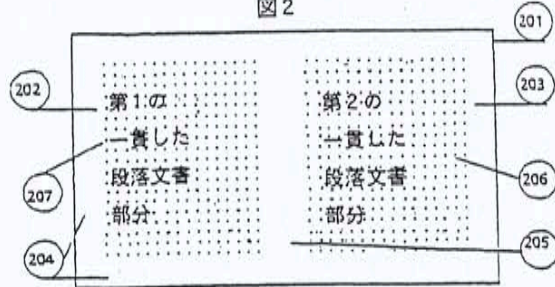 図2
201
202
第1の
一貫した
段落文書
部分
第2の
一貫した
段落文書
部分
203
207
206
204
205